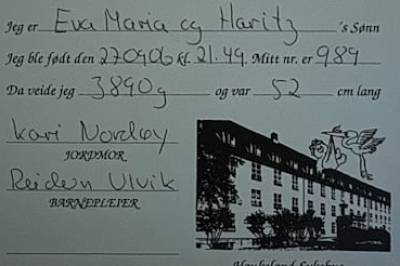 Jeg er Eva Maria og Haritz 's Sønn
Jeg ble født den 270906 kl. 21.49. Mitt nr. er 989
Da veide jeg 3890g og var 52 cm lang
Kari Nordøy
JORDMOR
Reidun Ulvik
BARNEPLEIER